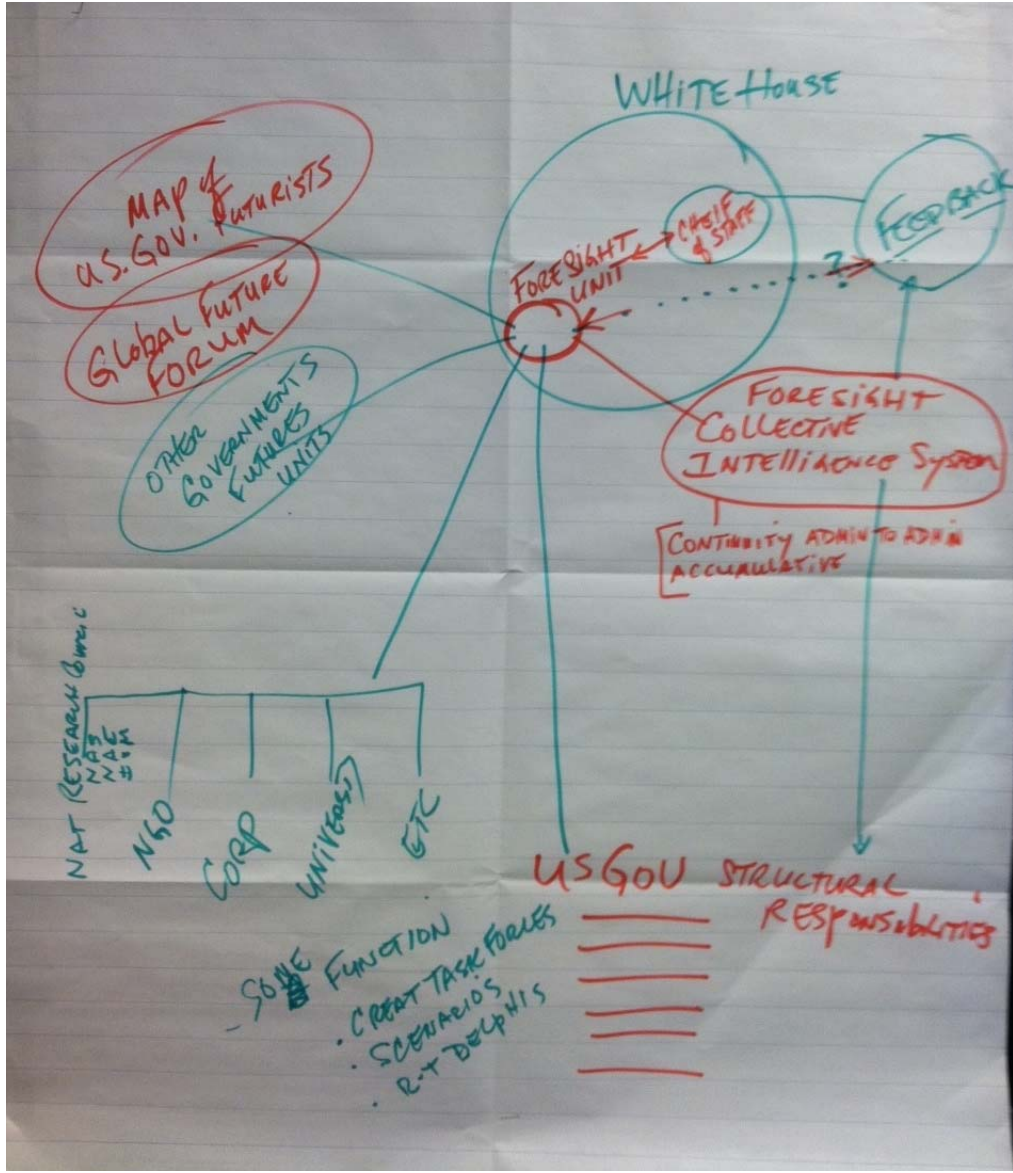 WHITE HOUSE
MAP of
U.S. GOV. FUTURISTS
GLOBAL FUTURE
FORUM
OTHER
GOVERNMENTS
FUTURES
UNITS
FORESIGHT
UNIT
CHEIF
of STAFF
FEEDBACK
?
FORESIGHT
COLLECTIVE
INTELLIGENCE SYSTEM
CONTINUITY ADMIN TO ADMIN
ACCUMULATIVE
NAT RESEARCH
NAS
NAE
NGO
CORP
ETC
US GOV STRUCTURAL
RESPONSIBILITIES
- SOME FUNCTION
. CREAT TASK FORCES
. SCENARIOS
. R-T DELPHIS